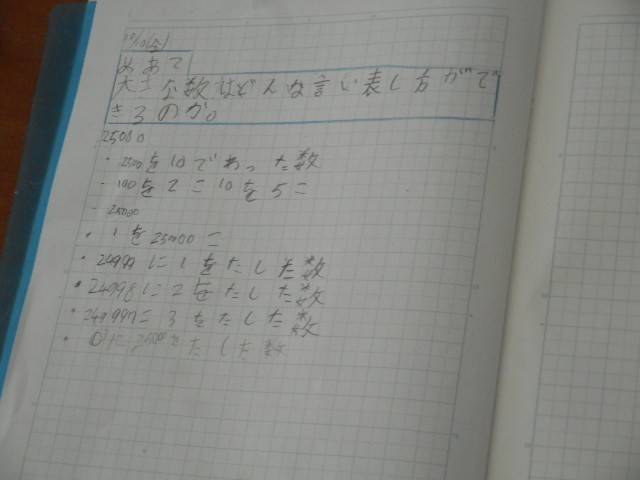 10/10(金)
めあて
大きな数はどんな言い表し方がで
きるのか。
25000
・2500を10でわった数
・100を2こ10を5こ
・25000
・1を25000こ
・24999に1をたした数
・24998に2をたした数
・24997に3をたした数
・0に25000をたした数